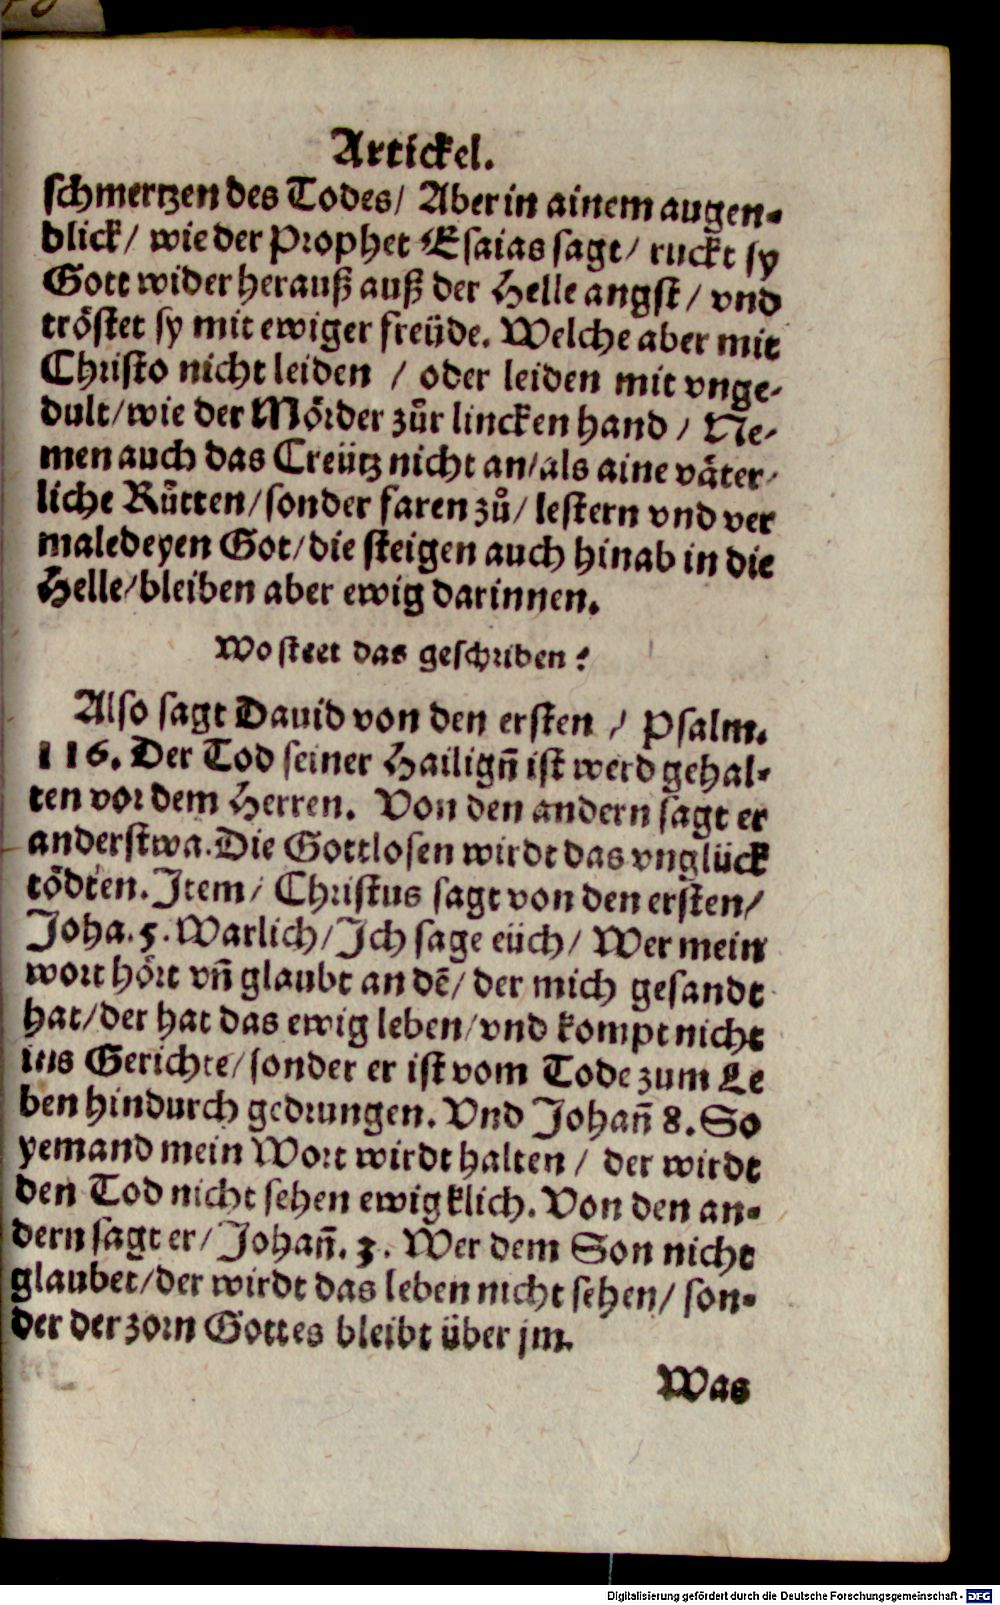 Artickel.
schmertzen des Todes/ Aber in ainem augen-
blick/ wie der Prophet Esaias sagt/ ruckt sy
Gott wider herauß auß der Helle angst/ vnd
tröstet sy mit ewiger freüde. Welche aber mit
Christo nicht leiden / oder leiden mit vnge-
dult/wie der Mörder zůr lincken hand / Ne-
men auch das Creütz nicht an/als aine väter-
liche Růtten/sonder faren zů/ lestern vnd ver
maledeyen Got/die steigen auch hinab in die
Helle/bleiben aber ewig darinnen.
Wo steet das geschriben?
Also sagt Dauid von den ersten / Psalm.
116. Der Tod seiner Hailign̄ ist werd gehal-
ten vor dem Herren. Von den andern sagt er
anderstwa. Die Gottlosen wirdt das vnglück
tödten. Item/ Christus sagt von den ersten/
Joha. 5. Warlich/Ich sage eüch/ Wer mein
wort hört vn̄ glaubt an dē/ der mich gesandt
hat/der hat das ewig leben/vnd kompt nicht
ins Gerichte/sonder er ist vom Tode zum Le
ben hindurch gedrungen. Vnd Johan̄ 8. So
yemand mein Wort wirdt halten / der wirdt
den Tod nicht sehen ewigklich. Von den an-
dern sagt er/ Johan̄. 3. Wer dem Son nicht
glaubet/der wirdt das leben nicht sehen/ son-
der der zorn Gottes bleibt über jm.
Was
Digitalisierung gefördert durch die Deutsche Forschungsgemeinschaft - DFG